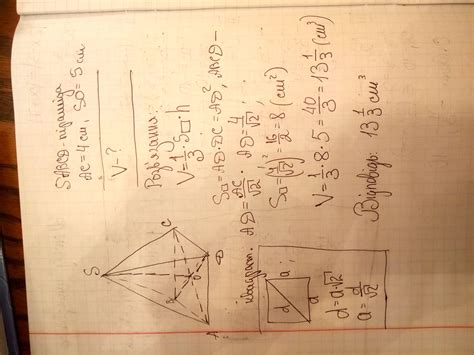 SABCD - піраміда
AC = 4 см, SO = 5 см
V - ?
Розв'язання
V = 1/3 · S□ · h
S□ = AD · DC = AD², ABCD -
квадрат. AD = AC/√2. AD = 4/√2;
S□ = (4/√2)² = 16/2 = 8 (см²)
V = 1/3 · 8 · 5 = 40/3 = 13 1/3 (см³)
Відповідь: 13 1/3 см³
S
C
B
O
A
D
d
a
a
d = a · √2
a = d/√2